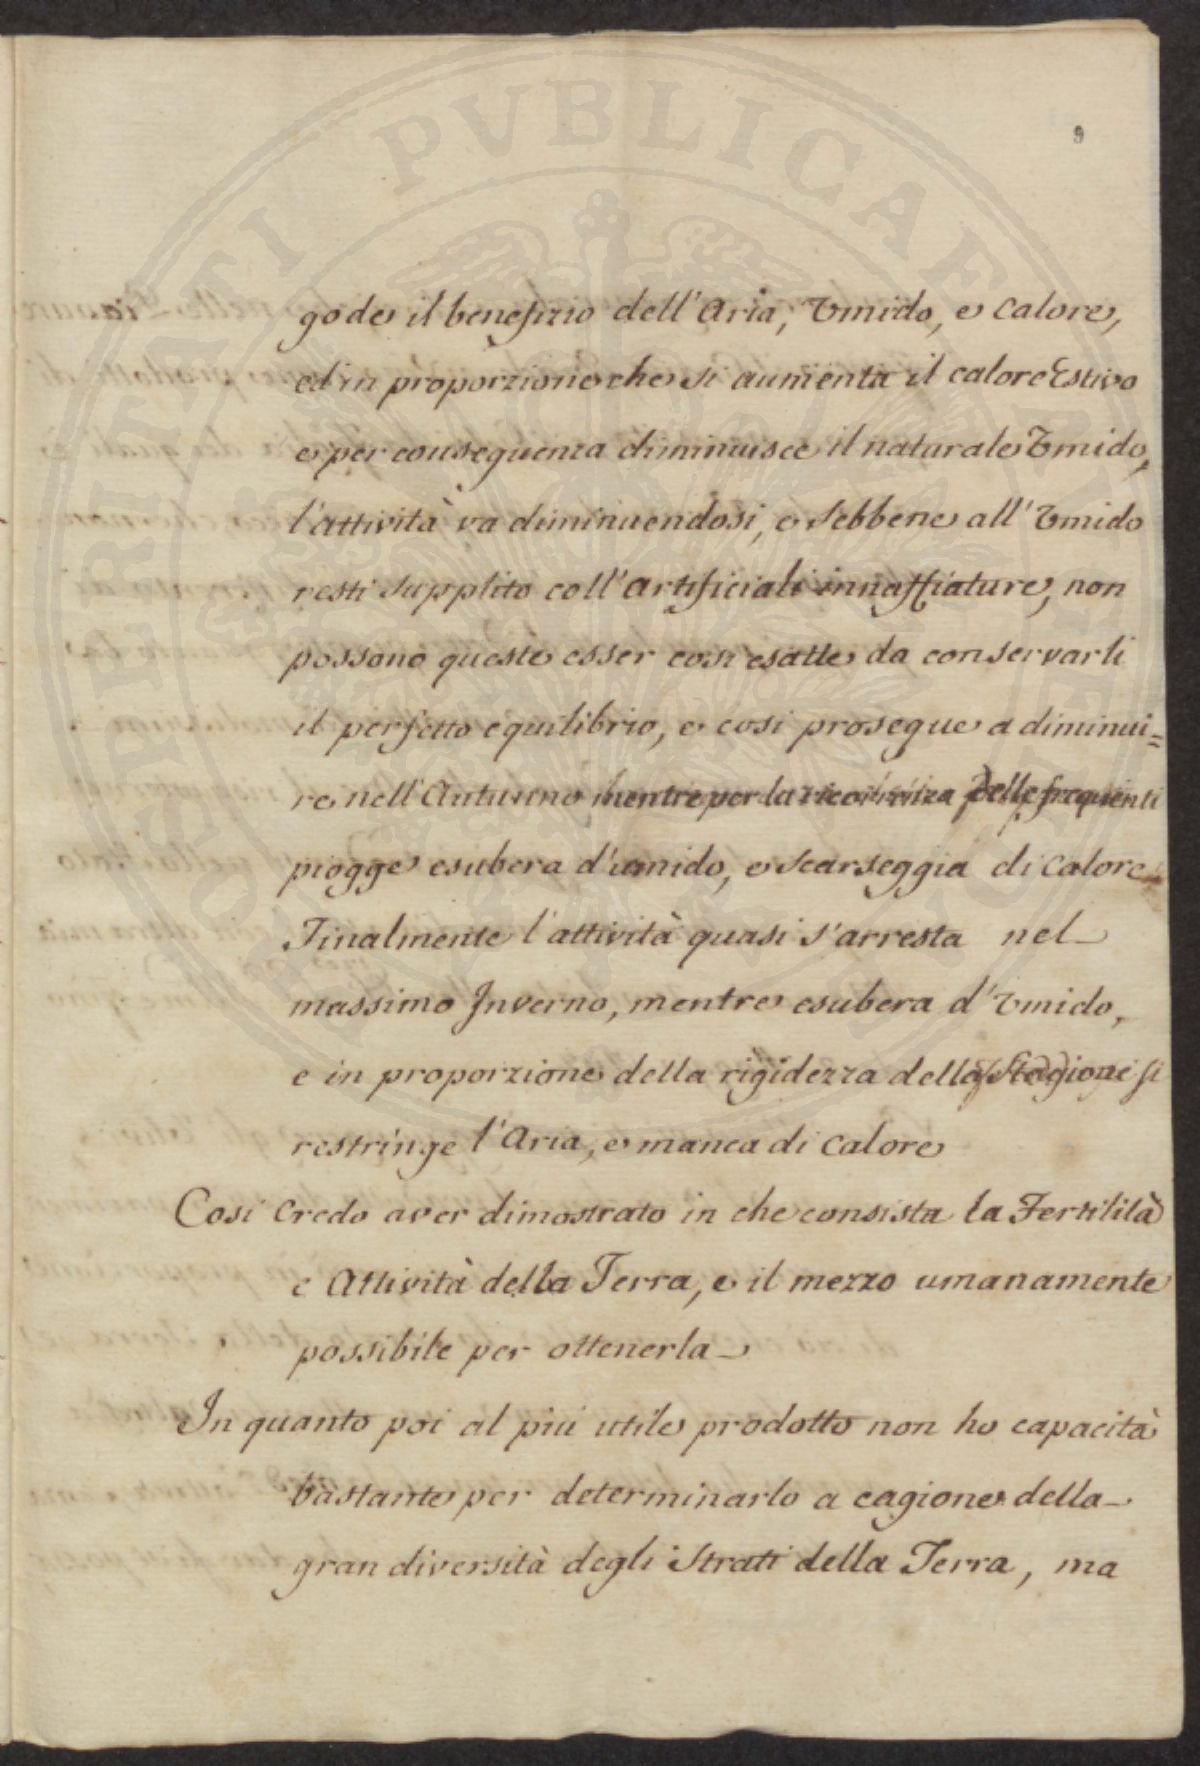 9
gode il benefizio dell'Aria, Vmido, e Calore,
ed in proporzione che si aumenta il calore Estivo
e per conseguenza diminuisce il naturale Vmido,
l'attività va diminuendosi, e sebbene all'Vmido
resti supplito coll'artificiali innaffiature, non
possono queste esser così esatte da conservarli
il perfetto equilibrio, e così prosegue a diminui=
re nell'Autunno, mentre per la ricorrenza delle frequenti
piogge esubera d'umido, e scarseggia di Calore
Finalmente l'attività quasi s'arresta nel
massimo Inverno, mentre esubera d'Vmido,
e in proporzione della rigidezza della Stagione si
restringe l'Aria, e manca di Calore
Così Credo aver dimostrato in che consista la Fertilità
e Attività della Terra, e il mezzo umanamente
possibile per ottenerla
In quanto poi al più utile prodotto non ho capacità
bastante per determinarlo a cagione della
gran diversità degli Strati della Terra, ma
PVBLICAE